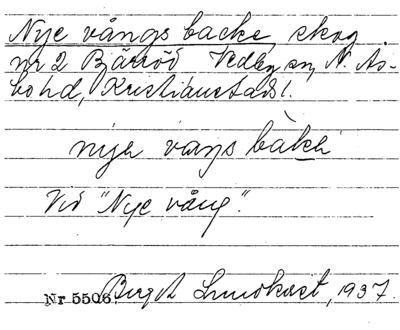 Nye vångs backe, skog
nr 2 Bjärröd Vedby sn, N. Ås-
bo hd, Kristianstads l.
nyje vaŋs bàkè
Vid "Nye vång".
Nr 5506. Birgit Lundkvist, 1937.